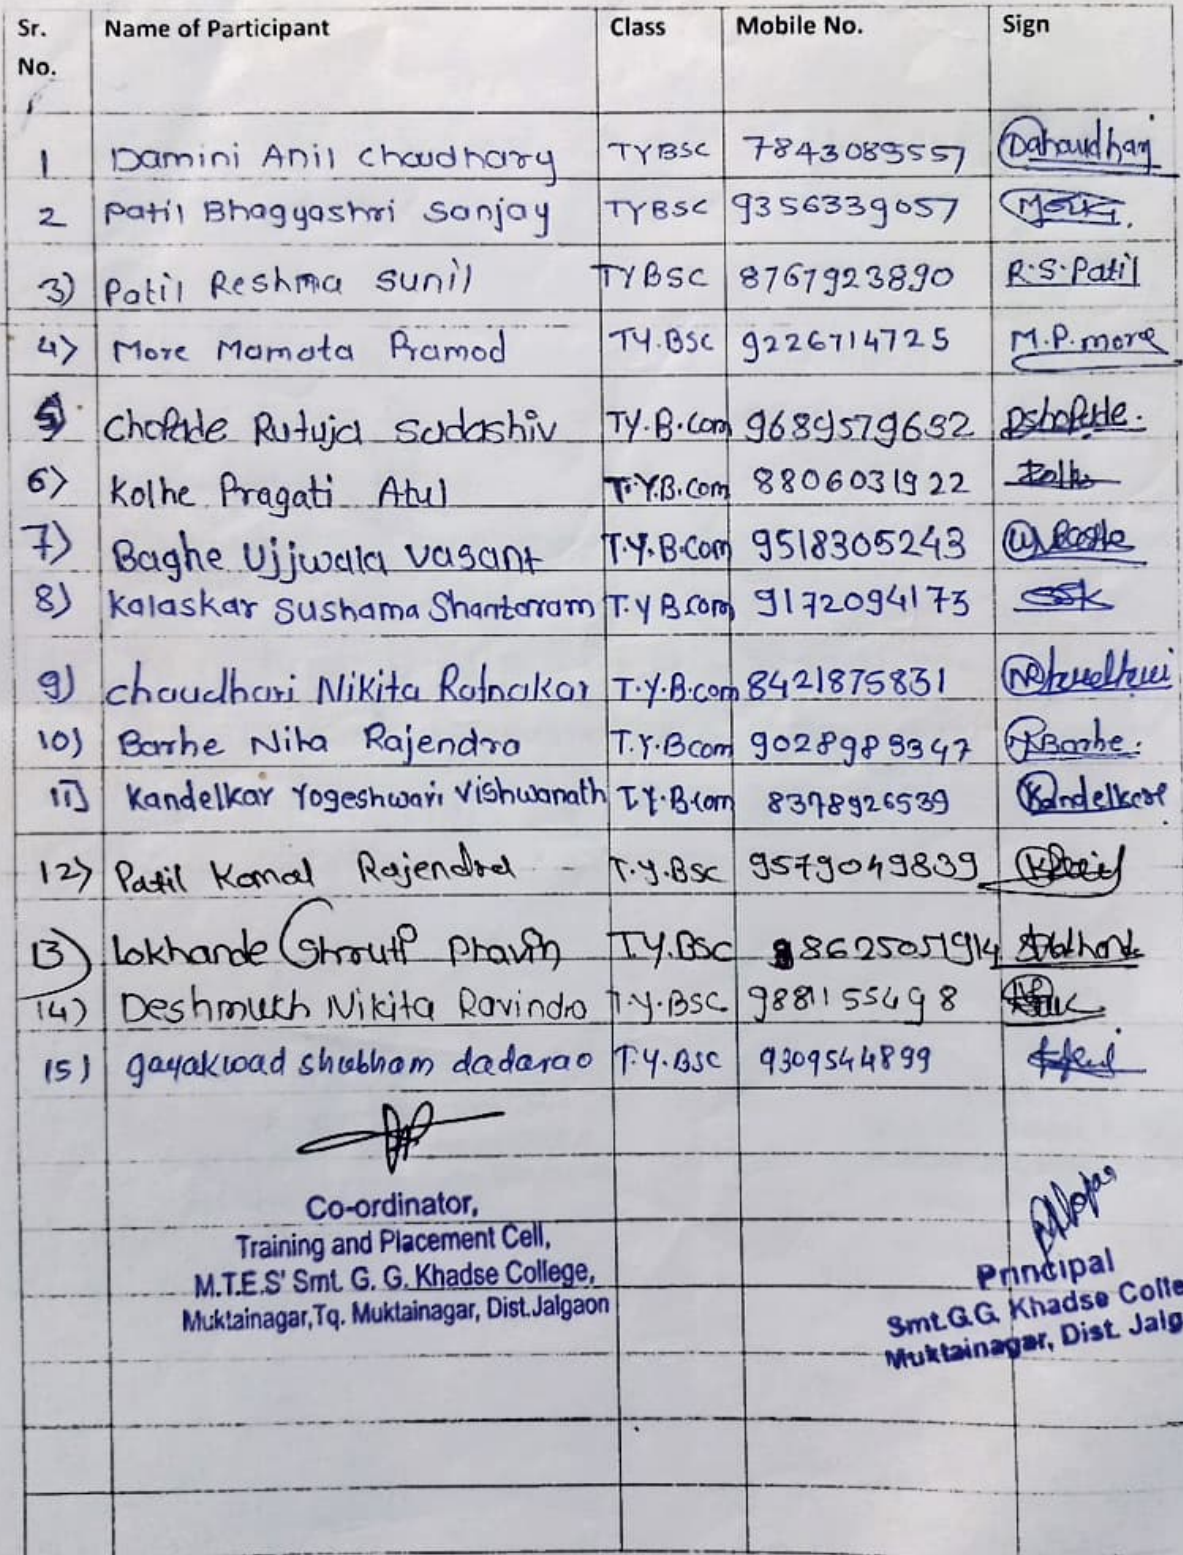 Sr. No. Name of Participant Class Mobile No. Sign
1 Damini Anil Chaudhary TYBSC 7843089557 Dahaudhary
2 Patil Bhagyashri Sanjay TYBSC 9356339057
3) Patil Reshma Sunil TYBSC 8767923890 R.S.Patil
4) More Mamata Pramod TY.BSC 9226714725 M.P.more
5) Chopade Rutuja Sadashiv TY.B.Com 9689579632
6) Kolhe Pragati Atul T.Y.B.Com 8806031922 Kolhe
7) Baghe Ujjwala Vasant T.Y.B.Com 9518305243
8) Kalaskar Sushama Shantaram T.Y B.Com 9172094173 SSK
9) chaudhari Nikita Ratnakar T.Y.B.com 8421875831
10) Barhe Niha Rajendra T.Y.Bcom 9028989347 Barhe.
11] Kandelkar Yogeshwari Vishwanath T.Y.B.com 8378926539 Kandelkar
12) Patil Komal Rajendra T.Y.BSC 9579049839
13) Lokhande Shruti Pravin T.Y.BSC 8625051914
14) Deshmukh Nikita Ravindra T.Y.BSC 9881155498
15) gayakwad shubham dadarao T.Y.BSC 9309544899
Co-ordinator,
Training and Placement Cell,
M.T.E.S' Smt. G. G. Khadse College,
Muktainagar,Tq. Muktainagar, Dist.Jalgaon
Principal
Smt.G.G. Khadse Colle
Muktainagar, Dist. Jalg